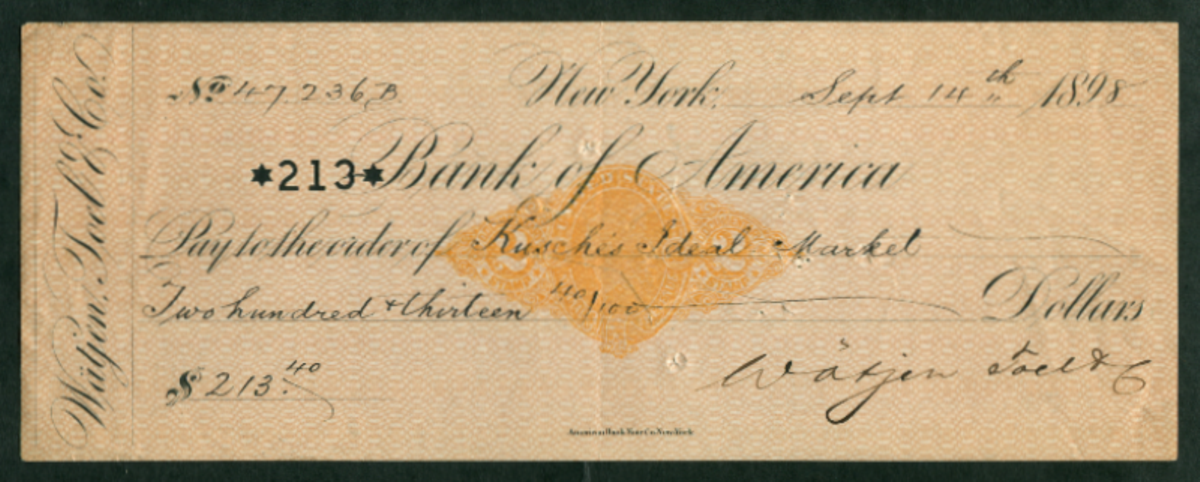 Wätjen, Toel & Co.
No 47236B New York, Sept 14th 1898
*213* Bank of America
Pay to the order of Kusche's Ideal Market
Two hundred & thirteen 40/100 Dollars
$ 213.40 Wätjen Toel & Co
American Bank Note Co. New York